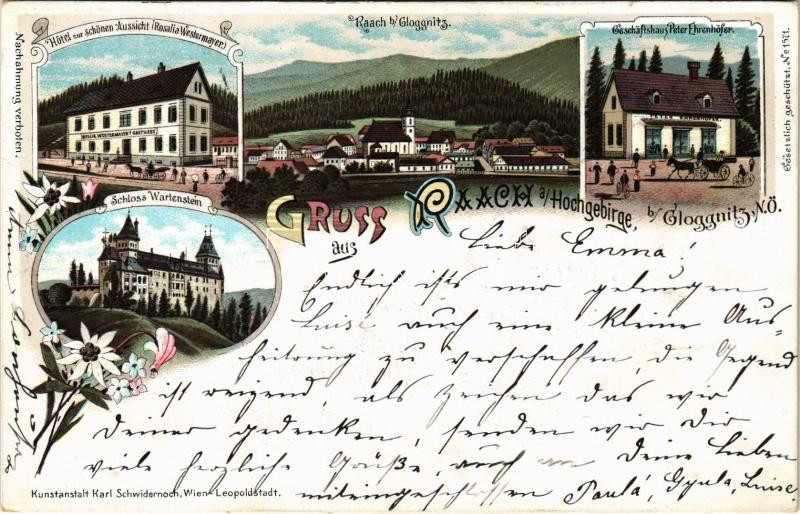 Hôtel zur schönen Aussicht (Rosalia Westermayer.)
Raach b/ Gloggnitz.
Geschäftshaus Peter Ehrenhöfer.
Nachahmung verboten.
Gesetzlich geschützt. No 1571.
PETER EHRENHÖFER
Schloss Wartenstein
GRUSS aus RAACH a/Hochgebirge, b/ Gloggnitz, N.Ö.
Liebe Emma!
Endlich ist's mir gelungen
Luise auch eine kleine Aus-
heiterung zu verschaffen, die Gegend
ist reizend, als Zeichen das wir
Deiner gedenken, senden wir Dir
viele herzliche Grüße, auch an Deine Lieben
miteingeschlossen Paula, Gyula, Luise.
Kunstanstalt Karl Schwidernoch, Wien-Leopoldstadt.